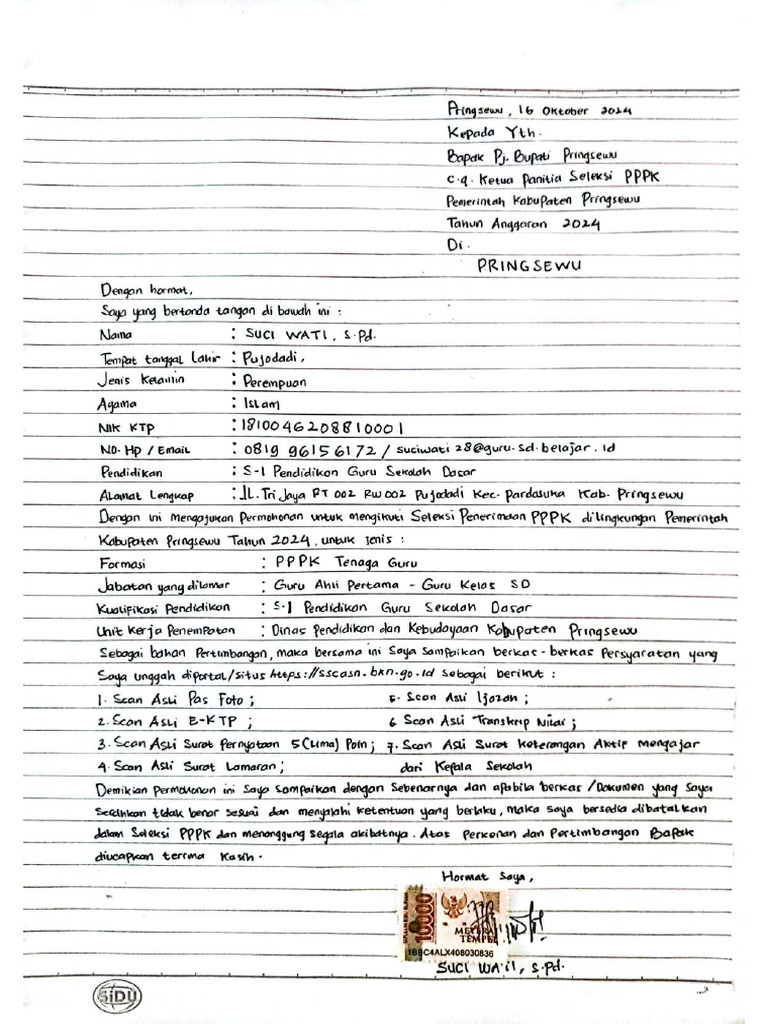 Pringsewu, 16 Oktober 2024
Kepada Yth.
Bapak Pj. Bupati Pringsewu
c.q. Ketua Panitia Seleksi PPPK
Pemerintah Kabupaten Pringsewu
Tahun Anggaran 2024
Di.
PRINGSEWU
Dengan hormat,
Saya yang bertanda tangan di bawah ini :
Nama : SUCI WATI, S.Pd.
Tempat tanggal lahir : Pujodadi,
Jenis Kelamin : Perempuan
Agama : Islam
NIK KTP : 1810046208810001
No. Hp / Email : 0819 96156172 / suciwati28@guru.sd.belajar.id
Pendidikan : S-1 Pendidikan Guru Sekolah Dasar
Alamat Lengkap : JL. Tri Jaya RT 002 RW 002 Pujodadi Kec. Pardasuka Kab. Pringsewu
Dengan ini mengajukan Permohonan untuk mengikuti Seleksi Penerimaan PPPK dilingkungan Pemerintah
Kabupaten Pringsewu Tahun 2024, untuk jenis :
Formasi : PPPK Tenaga Guru
Jabatan yang dilamar : Guru Ahli Pertama - Guru Kelas SD
Kualifikasi Pendidikan : S-1 Pendidikan Guru Sekolah Dasar
Unit Kerja Penempatan : Dinas Pendidikan dan Kebudayaan Kabupaten Pringsewu
Sebagai bahan Pertimbangan, maka bersama ini Saya Sampaikan berkas-berkas Persyaratan yang
Saya unggah diportal/situs https://sscasn.bkn.go.id sebagai berikut :
1. Scan Asli Pas Foto ; 5. Scan Asli Ijazah ;
2. Scan Asli E-KTP ; 6 Scan Asli Transkrip Nilai ;
3. Scan Asli Surat Pernyataan 5 (Lima) Poin ; 7. Scan Asli Surat Keterangan Aktif Mengajar
4. Scan Asli Surat Lamaran ; dari Kepala Sekolah
Demikian Permohonan ini Saya Sampaikan dengan Sebenarnya dan apabila berkas / Dokumen yang Saya
Serahkan tidak benar sesuai dan menyalahi ketentuan yang berlaku, maka Saya bersedia dibatalkan
dalam Seleksi PPPK dan menanggung Segala akibatnya. Atas Perkenan dan Pertimbangan Bapak
diucapkan terima Kasih.
Hormat Saya,
10000
METERAI
TEMPEL
1BBC4ALX408030836
SUCI WATI, S.Pd.
SiDU